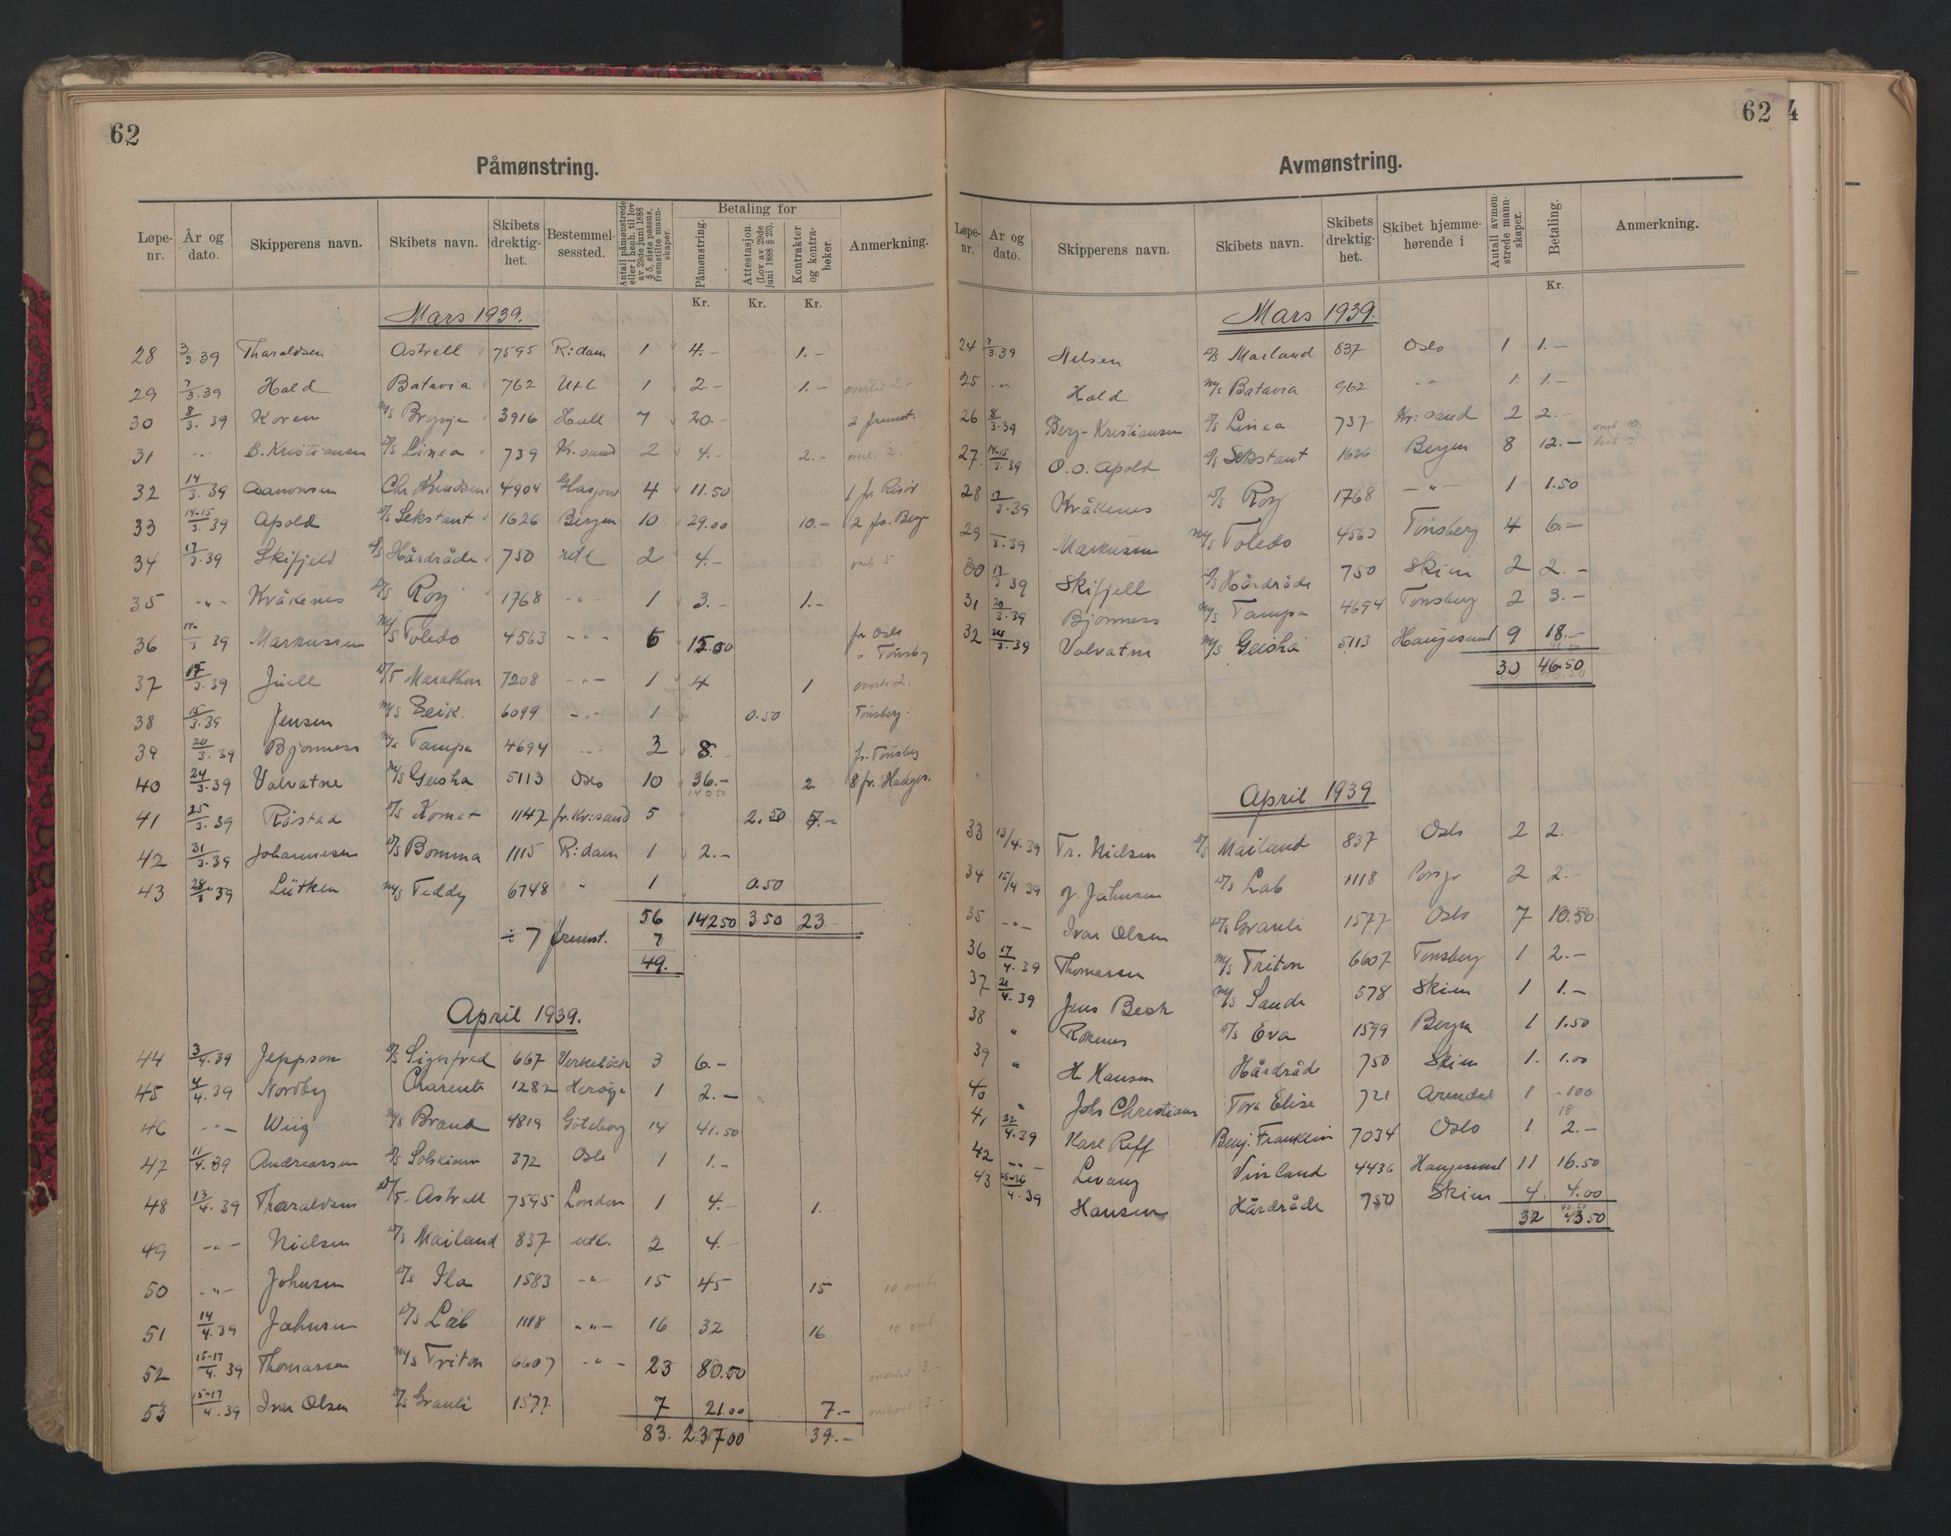 62
Påmønstring.
Løpe-nr. År og dato. Skipperens navn. Skibets navn. Skibets drektig-het. Bestemmel-sessted. Antall påmønstrede eller i henh. til lov av 29de juni 1888 § 5, siste passus, fremstilte mann-skaper. Betaling for Påmønstring. Attestasjon (Lov av 29de juni 1888 § 29). Kontrakter og kontra-bøker. Anmerkning.
Kr. Kr. Kr.
Mars 1939.
28 3/3.39 Tharaldsen Astrell 7595 R:dam 1 4.- 1.-
29 7/3.39 Hald Batavia 762 Utl 1 2.- 1.-
30 8/3.39 Koren M/S Brynje 3916 Hull 7 20.- 2 fremst.
31 -"- B. Kristiansen D/S Linea 739 Kr.sand 2 4.- 2.- omb. 2.
32 14/3.39 Aanonsen Chr Knudsen 4904 Glasgow 4 11.50 1 fr. Risør
33 14-15/3.39 Apold D/S Sekstant 1626 Bergen 10 29.00 10.- 2 fr. Berge
34 17/3.39 Skifjeld D/S Hårdråde 750 utl 2 4.- omb 5
35 -"- Kvåkenes D/S Roy 1768 -"- 1 3.- 1.-
36 /3 39 Markussen M/S Toledo 4563 -"- 6 15.00 fr Oslo " Tønsberg
37 /3.39 Juell D/T Marathon 7208 -"- 1 4 1 overt. 2.
38 15/3.39 Jensen M/S Zeik. 6099 -"- 1 0.50 Tønsberg.
39 20/3.39 Bjønness M/S Tampa 4694 -"- 3 8. fr. Tønsberg
40 24/3.39 Valvatne M/S Geisha 5113 Oslo 10 36.- 2 8 fr. Hauges.
41 25/3.39 Røstad D/S Komet 1147 fr.Kr:sand 5 2.50 5.-
42 31/3.39 Johannesen D/S Bomma 1115 R:dam 1 2.-
43 28/3 39 Lütken M/S Teddy 6748 " 1 0.50
56 142.50 3.50 23.-
÷ 7 fremst. 7
49.
April 1939.
44 3/4.39 Jeppson D/S Signfred 667 Verkebäck 3 6.-
45 4/4.39 Nordby Charente 1282 Herøya 1 2.-
46 -"- Wiig M/S Brand 4819 Göteborg 14 41.50
47 11/4.39 Andreassen D/S Solskinn 372 Oslo 1 1.-
48 13/4.39 Tharaldsen D/T. Astrell 7595 London 1 4.- 1.-
49 -"- Nielsen D/S Mailand 837 utl. 2 4.-
50 -"- Johnsen D/S Ila 1583 -"- 15 45 15
51 14/4.39 Jahnsen D/S Lab 1118 -"- 16 32 16
52 15-17/4.39 Thomassen M/S Triton 6607 -"- 23 80.50
53 15-17/4.39 Ivar Olsen D/S Granli 1577 7 21.00 7.-
83. 237.00 39.-
62 4
Avmønstring.
Løpe-nr. År og dato. Skipperens navn. Skibets navn. Skibets drektig-het. Skibet hjemme-hørende i Antall avmøn-strede mann-skaper. Betaling. Anmerkning.
Kr.
Mars 1939.
24 7/3.39 Nilsen D/S Mailand 837 Oslo 1 1.-
25 -"- Hald M/S Batavia 962 -"- 1. 1.-
26 8/3.39 Berg-Kristiansen D/S Linea 737 Kr:sand 2 2.-
27. 14-15/3.39 O.O. Apold D/S Sekstant 1626 Bergen 8 12.- omb. 10.
28 17/3.39 Kvåkenes D/S Roy 1768 -"- 1 1.50
29 /3.39 Markussen M/S Toledo 4563 Tønsberg 4 6.-
30 17/3 39 Skifjell D/S Hårdråde 750 Skien 2 2.-
31 20/3.39 Bjønness M/S Tampa 4694 Tønsberg 2 3.-
32 24/3.39 Valvatne M/S Geisha 5113 Haugesund 9 18.-
30 46.50
April 1939
33 13/4.39 Tr. Nielsen D/S Mailand 837 Oslo 2 2.-
34 15/4 39 J. Jahnsen D/S Lab 1118 Porsgr 2 2.-
35 -"- Ivar Olsen D/S Granli 1577 Oslo 7 10.50
36 17/4.39 Thomassen M/S Triton 6607 Tønsberg 1 2.-
37 21/4.39 Jens Bech M/S Sande 578 Skien 1 1.-
38 " Rokenes D/S Eva 1599 Bergen 1 1.50
39 " H Hansen Hårdråde 750 Skien 1. 1.00
40 " Johs Christians Tora Elise 721 Arendal 1 .100
41 22/4.39 Karl Reff Benj. Franklin 7034 Oslo 1 2.-
42 -"- Levang Vinland 4436 Haugesund 11 16.50
43 25-26/4.39 Hansen Hårdråde 750 Skien 4. 4.00
32 43.50